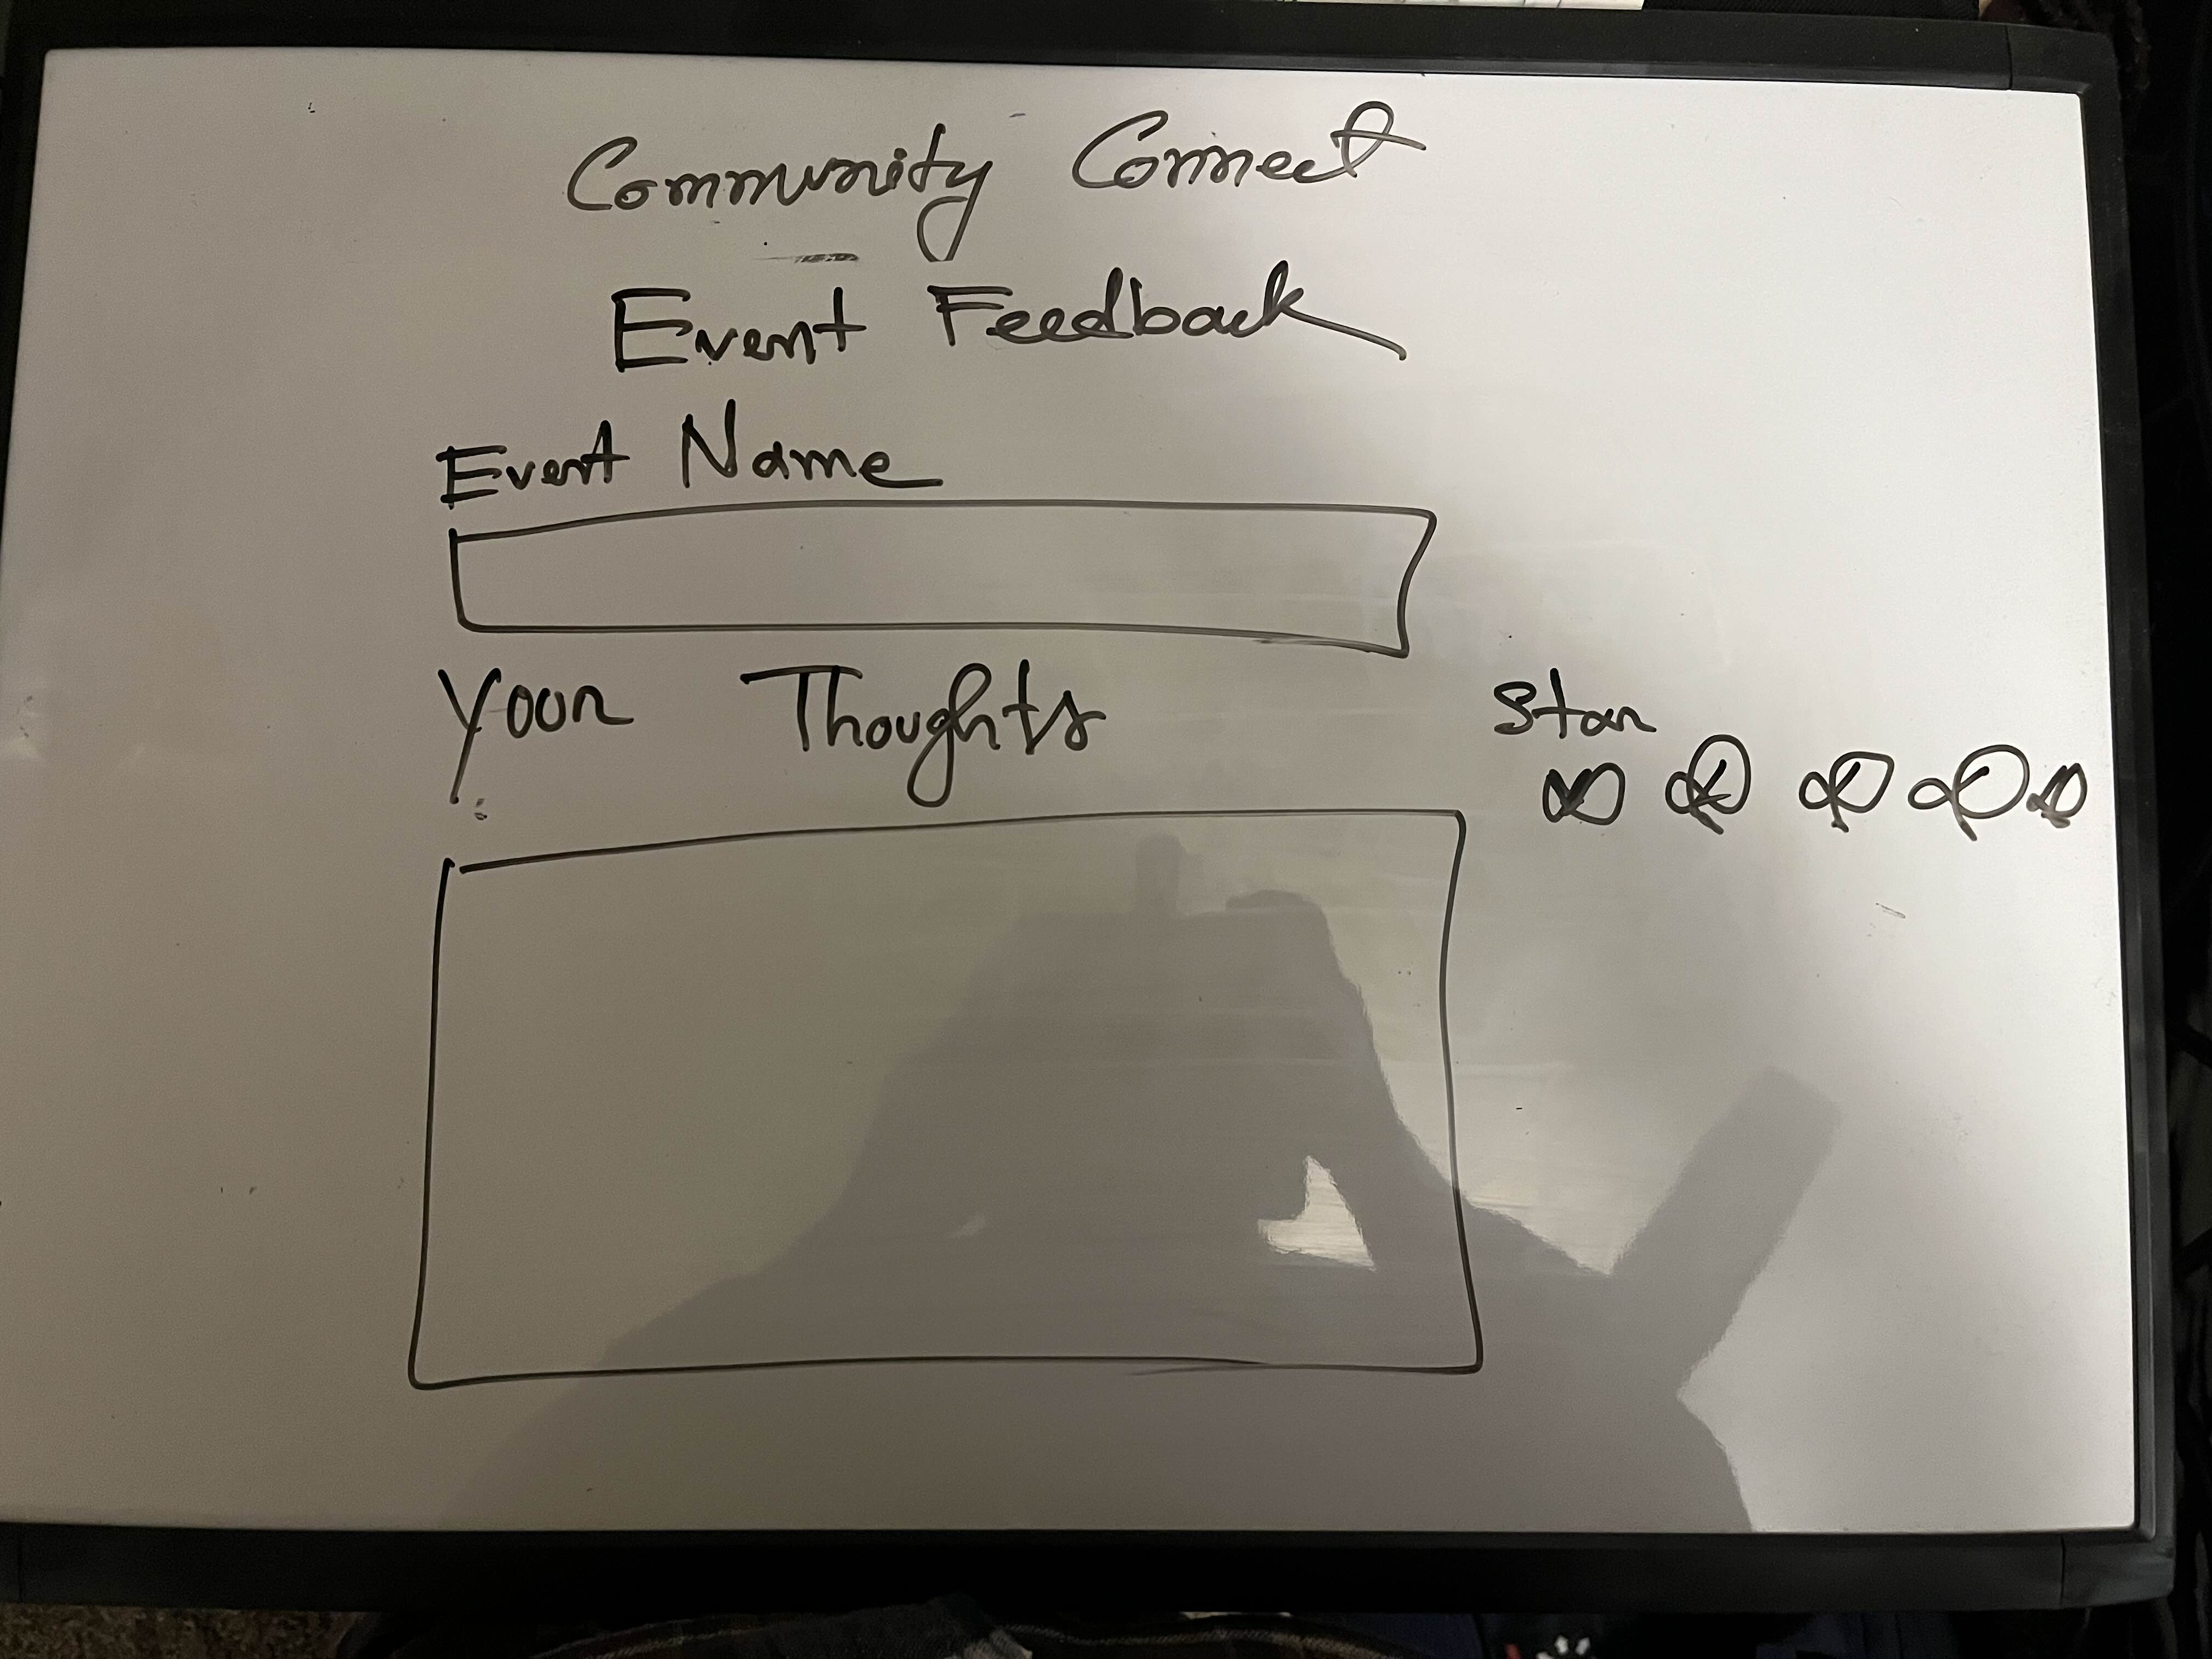 Community Connect
Event Feedback
Event Name
Your Thoughts
Star